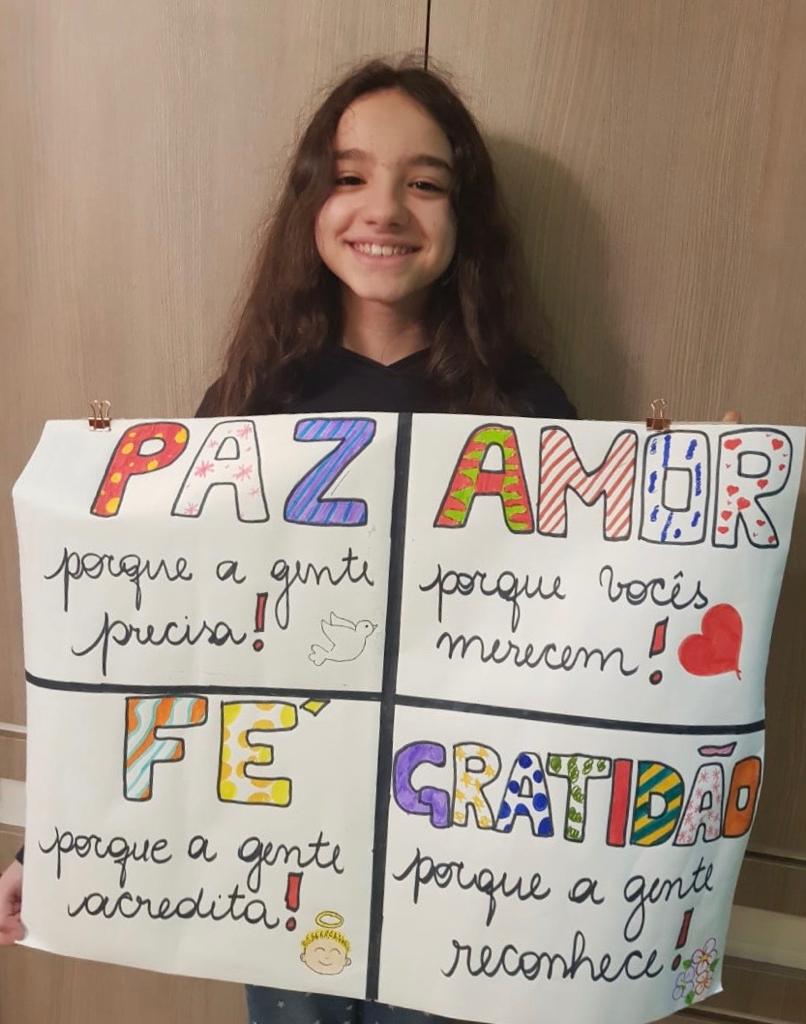 PAZ
porque a gente
precisa!
AMOR
porque vocês
merecem!
FÉ
porque a gente
acredita!
GRATIDÃO
porque a gente
reconhece!